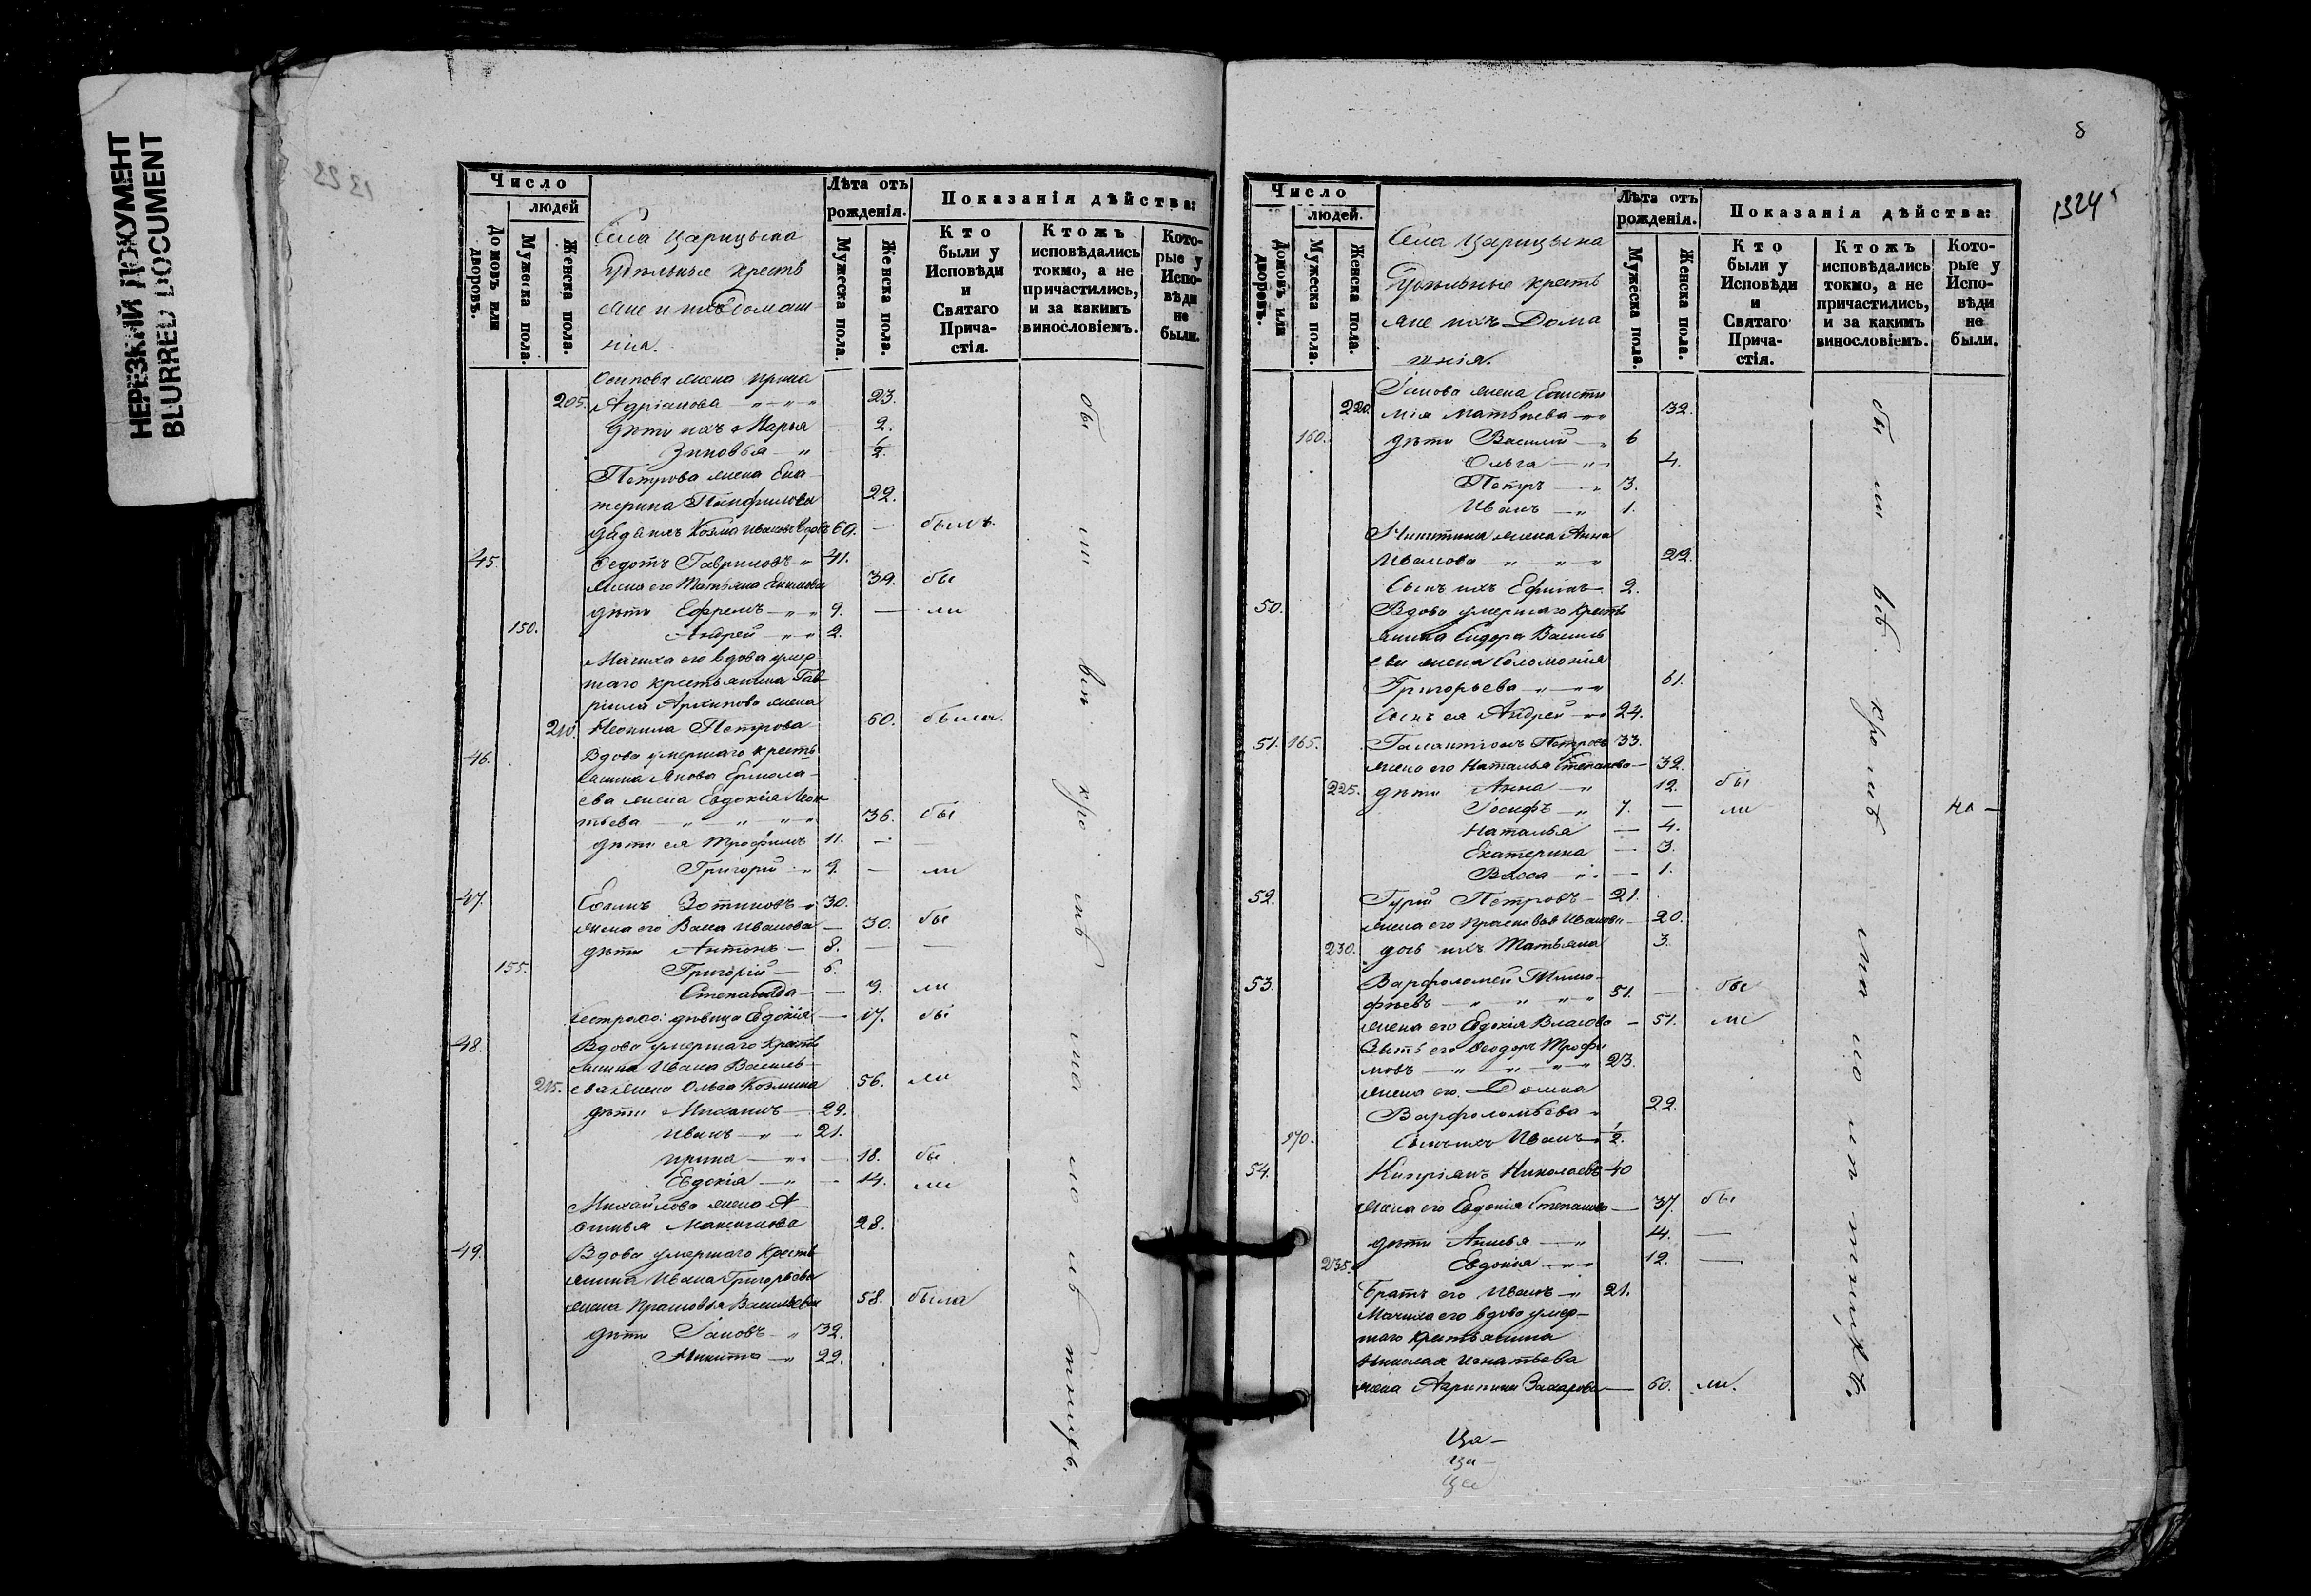 НЕРЕЗКИЙ ДОКУМЕНТ
BLURRED DOCUMENT
Число
людей
Домовъ или дворовъ.
Мужеска пола.
Женска пола.
Села Царицына
Удѣльные кресть
яне и ихъ домаш
нiа.
Лѣта отъ рожденія.
Мужеска пола.
Женска пола.
Показанія дѣйства:
Кто были у Исповѣди и Святаго Прича-стія.
Ктожъ исповѣдались токмо, а не причастились, и за какимъ винословіемъ.
Кото-рые у Испо-вѣди не были.
Осипова жена Ирина
205. Адріанова 23.
дѣти ихъ Марья 2.
Зиновья 1/2.
Петрова жена Ека
терина Панфилова 22.
дядя ихъ Козма Ивановъ 69. — былъ.
45. Федотъ Гавриловъ 41.
жена его Татьяна Екимова 39. бы
дѣти Ефремъ 9. — ли
150. Андрей 2.
Мачиха его вдова умер
шаго крестьянина Гав
ріила Архипова жена
210. Неонила Петрова 60. была.
46. Вдова умершаго кресть
янина Якова Ермола
ева жена Евдокія Леон
тьева 36. бы
дѣти ея Трофимъ 11. —
Григорій 9. — ли
47. Зотиковъ 30.
жена его Васа Иванова — 30. бы
дѣти Антонъ — 8. — —
155. Григорій — 6.
Степанида — — 9. ли
сестра его: дѣвица Евдокія — 17. бы
48. Вдова умершаго кресть
янина Ивана Василь
215. ева жена Ольга Козмина 56. ли
дѣти Михаилъ 29.
Иванъ 21.
Ирина — 18. бы
Евдокія — 14. ли
Михайлова жена А
Максимова 28.
49. Вдова умершаго кресть
янина Ивана Григорьева
жена Прасковья Васильева 58. была
дѣти Іаковъ 32.
Никита 22.
бы ли вѣ кро мѣ мла мо лѣ тнихъ.
8
1324
Число
людей.
Домовъ или дворовъ.
Мужеска пола.
Женска пола.
Села Царицына
Удѣльные кресть
яне ихъ Дома
шнія.
Лѣта отъ рожденія.
Мужеска пола.
Женска пола.
Показанія дѣйства:
Кто были у Исповѣди и Святаго Прича-стія.
Ктожъ исповѣдались токмо, а не причастились, и за какимъ винословіемъ.
Кото-рые у Испо-вѣди не были.
Іакова жена Евсти
220. Матвѣева 32.
160. дѣти Василій 6
Ольга 4.
Петръ 3.
Иванъ 1.
Никитина жена Анна
Иванова 22.
Сынъ ихъ Ефимъ 2.
50. Вдова умершаго кресть
янина Сидора Василь
ева жена Соломонія
Григорьева 61.
Сынъ ея Андрей 24.
51. 165. Галактіонъ Петровъ 33.
жена его Наталья Степанова — 32.
225. дѣти Анна 12. бы
Іосифъ 7. — ли
Наталья — 4.
Екатерина — 3.
Васса — 1.
52. Гурій Петровъ — 21.
жена его Прасковья Иванова — 20.
230. дочь ихъ Татьяна 3.
53. Варфоломей Тимо
фѣевъ 51. — бы
жена его Евдокія Власова — 51. ли
Зять его Ѳеодоръ Трофи
мовъ 23.
жена его Домна
Варфоломѣева 22.
170. Сынъ ихъ Иванъ 1/2.
54. Кипріянъ Николаевъ 40
жена его Евдокія Степанова — 37. бы
дѣти 14. —
235. Евдокія 12. —
Братъ его Иванъ 21.
Мачиха его вдова умер
шаго крестьянина
Николая Игнатьева
жена Агрипина Захарова — 60. ли.
Ца—
Ца—
Ца